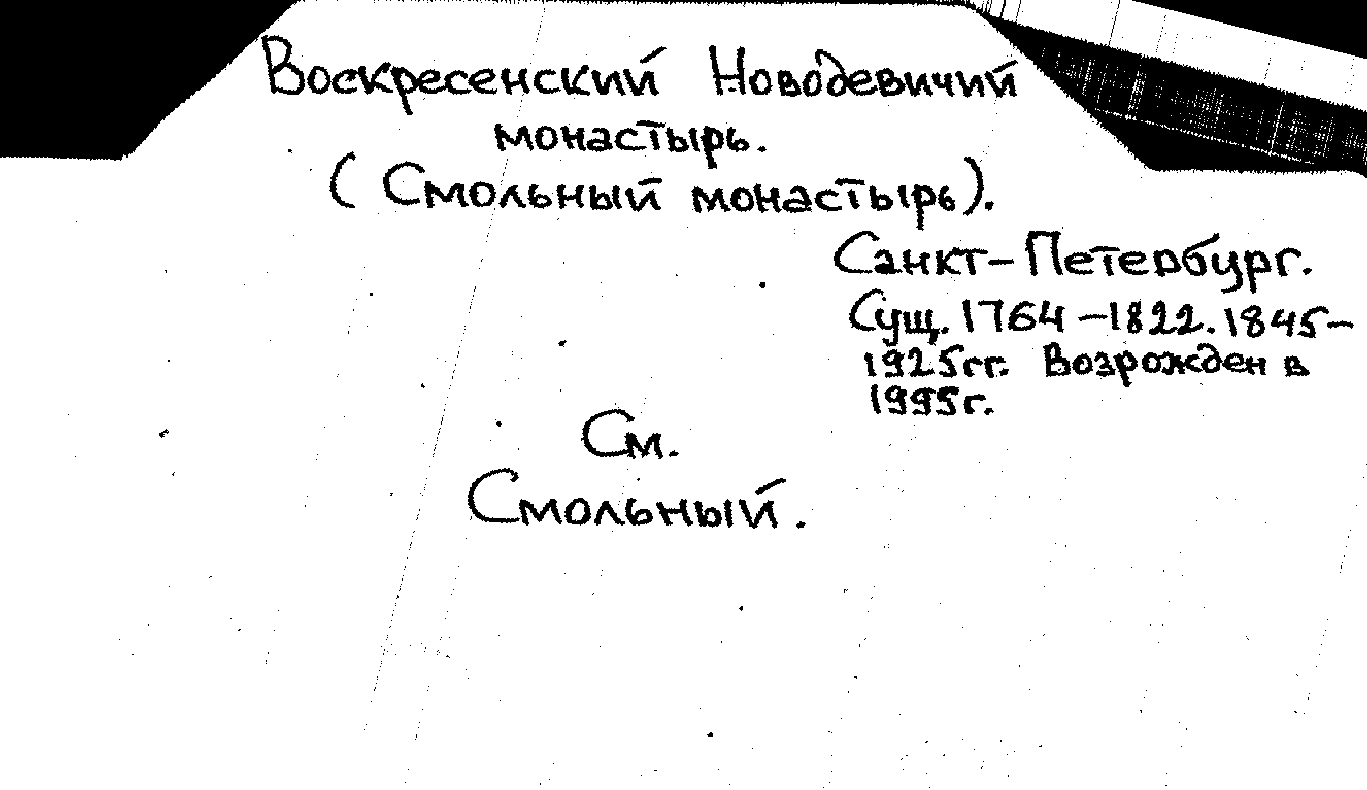 Воскресенский Новодевичий
монастырь.
(Смольный монастырь).
Санкт-Петербург.
Сущ. 1764-1822. 1845-
1925гг. Возрожден в
1995г.
См.
Смольный.